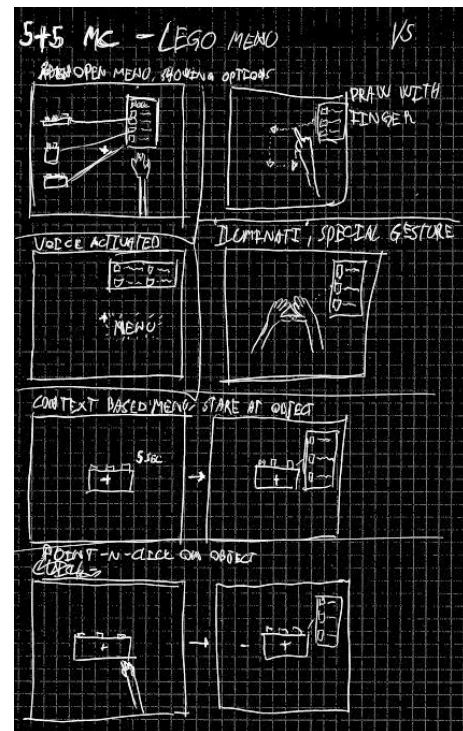 5+5 MC - LEGO MENU
VS
OPEN MENU, SHOWING OPTIONS
DRAW WITH
FINGER
VOICE ACTIVATED
"ILUMINATI", SPECIAL GESTURE
MENU
CONTEXT BASED MENU, STARE AT OBJECT
5 SEC
POINT-N-CLICK ON OBJECT